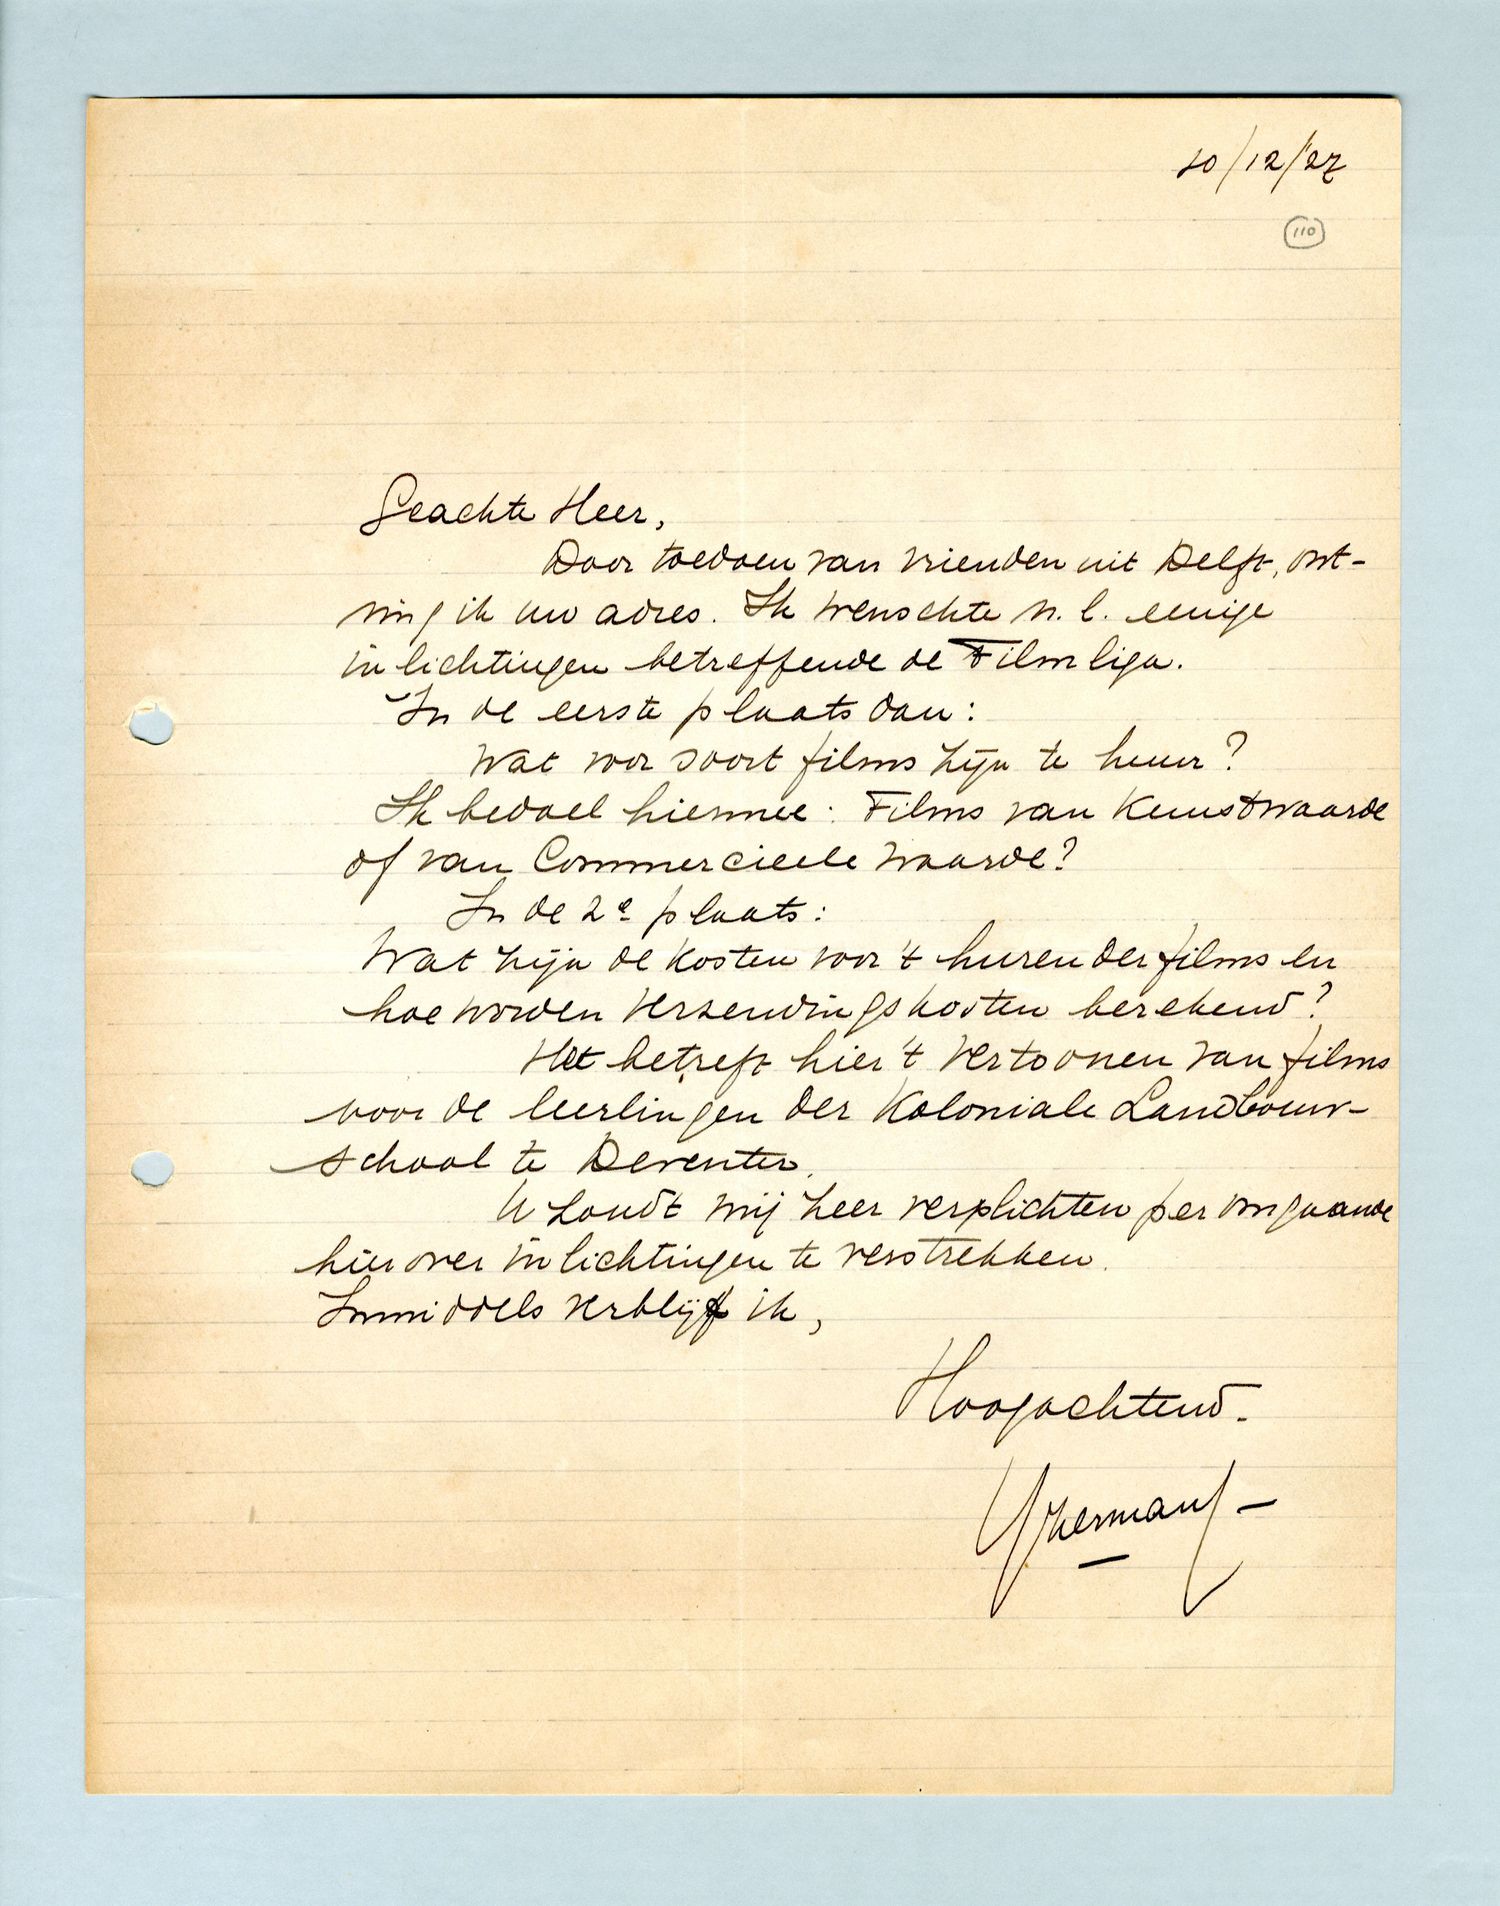 10/12/'27
110
Geachte Heer,
Door toedoen van vrienden uit Delft, ont-
ving ik uw adres. Ik wenschte n.l. eenige
inlichtingen betreffende de Filmliga.
In de eerste plaats dan:
Wat voor soort films zijn te huur?
Ik bedoel hiermee: Films van Kunstwaarde
of van Commercieele waarde?
In de 2e plaats:
Wat zijn de kosten voor 't huren der films en
hoe worden verzendingskosten berekend?
Het betreft hier 't vertoonen van films
voor de leerlingen der Koloniale Landbouw-
school te Deventer.
U zoudt mij zeer verplichten per omgaande
hierover inlichtingen te verstrekken.
Inmiddels verblijf ik,
Hoogachtend.